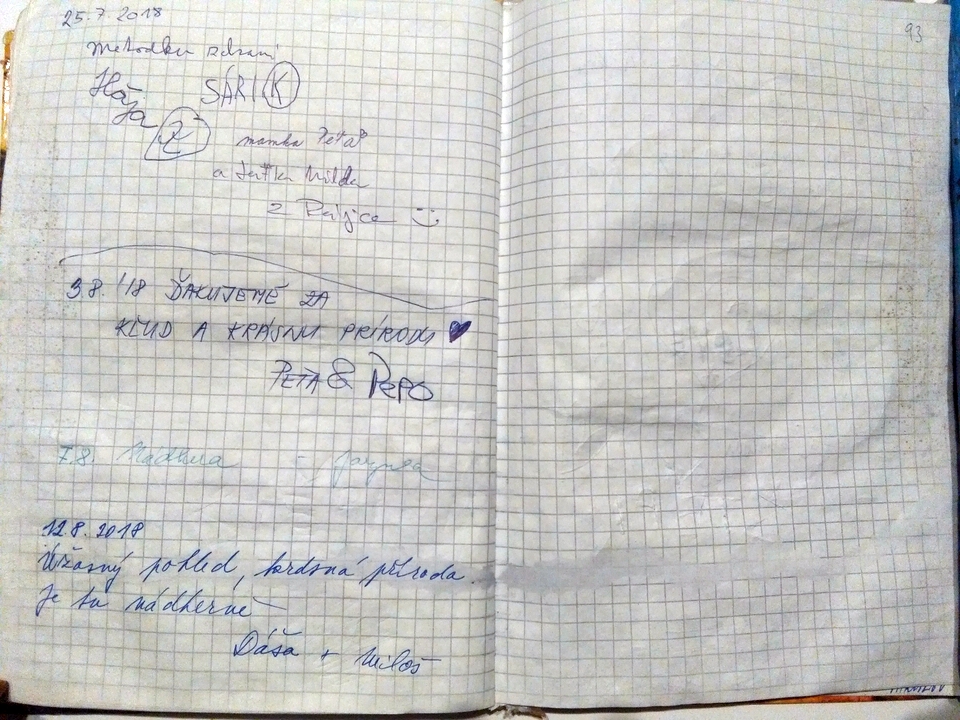 25.7.2018
zdraví
Hája SÁRI K
mamka Péťa
a taťka Milda
z
93
3.8. '18 ĎAKUJEME ZA
KĽUD A KRÁSNU PRÍRODU ♥
PEŤA & PEPO
7.8. Nádhera -
12.8.2018
Úžasný pohled, krásná příroda.
Je tu nádherně
Dáša + Miloš